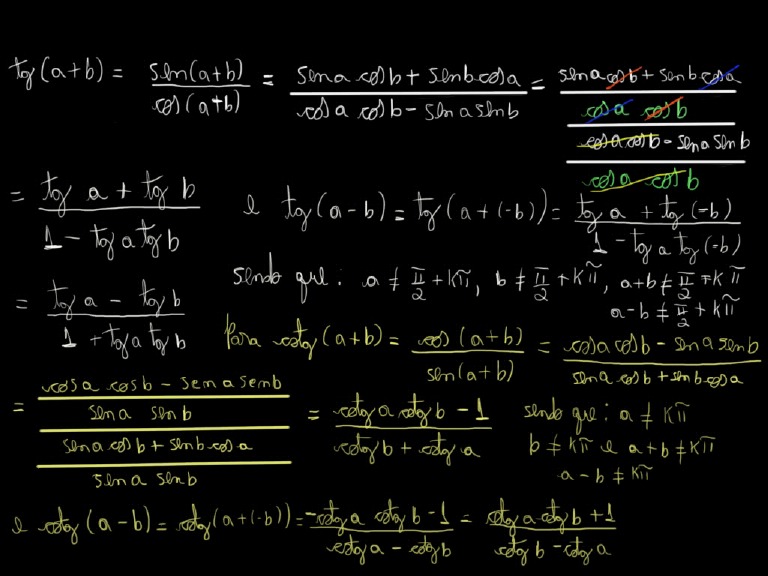 tg(a+b) = sen(a+b)/cos(a+b) = (sen a cos b + sen b cos a)/(cos a cos b - sen a sen b) = ((sen a cos b + sen b cos a)/(cos a cos b))/((cos a cos b - sen a sen b)/(cos a cos b))
= (tg a + tg b)/(1 - tg a tg b) e tg(a-b) = tg(a+(-b)) = (tg a + tg(-b))/(1 - tg a tg(-b))
sendo que: a ≠ π/2 + kπ, b ≠ π/2 + kπ, a+b ≠ π/2 + kπ
a-b ≠ π/2 + kπ
= (tg a - tg b)/(1 + tg a tg b)
Para cotg(a+b) = cos(a+b)/sen(a+b) = (cos a cos b - sen a sen b)/(sen a cos b + sen b cos a)
= ((cos a cos b - sen a sen b)/(sen a sen b))/((sen a cos b + sen b cos a)/(sen a sen b)) = (cotg a cotg b - 1)/(cotg b + cotg a)
sendo que: a ≠ kπ
b ≠ kπ e a+b ≠ kπ
a-b ≠ kπ
e cotg(a-b) = cotg(a+(-b)) = (-cotg a cotg b - 1)/(cotg a - cotg b) = (cotg a cotg b + 1)/(cotg b - cotg a)